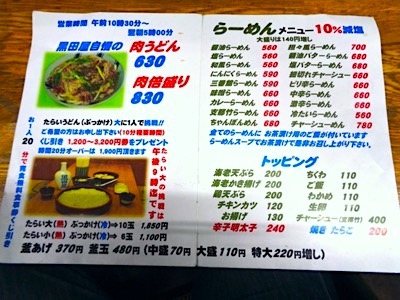 営業時間 午前10時30分〜
翌朝5時00分
黒田屋自慢の 肉うどん
630
肉倍盛り
830
たらいうどん(ぶっかけ)大に1人で挑戦!!
ご希望の方はお申し出下さい(10分程要時間)
くじ引き 1,200〜3,200円券をプレゼント
時間20分オーバーは 1,900円頂きます
お一人20分で完食無料食事券くじ引き
たらい大の挑戦は午後9時迄です
たらい大(熱) ぶっかけ(冷)⇒10玉 1,850円
たらい小(熱) ぶっかけ(冷)⇒ 6玉 1,100円
釜あげ 370円 釜玉 480円 (中盛 70円 大盛 110円 特大 220円増し)
らーめん メニュー 10%減塩
大盛りは140円増し
醤油らーめん 560
塩らーめん 560
和風らーめん 560
にんにくらーめん 590
野菜らーめん 660
味噌らーめん 660
カレーらーめん 660
ちゃんぽんめん 680
担々風らーめん 700
醤油バターらーめん 680
塩バターらーめん 680
細切れチャーシュー 660
ピリ辛らーめん 660
中辛らーめん 660
冷たいらーめん 660
チャーシューめん 780
全てのらーめんに お茶漬け用のご飯が付いています
らーめんスープでお茶漬けで是非お召し上がり下さい。
トッピング
海老天ぷら 200
海老かき揚げ 200
鶏天ぷら 200
チキンカツ 120
お揚げ 130
辛子明太子 240
ちくわ 110
ご飯 110
わかめ 110
生卵 110
チャーシュー 400
焼き たらこ 200